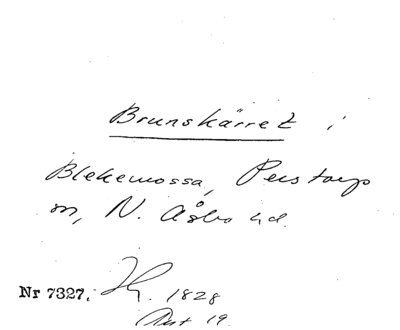 Brunskärret i
Blekemossa, Perstorp
sn, N. Åsbo hd.
Nr 7327. 1828
19